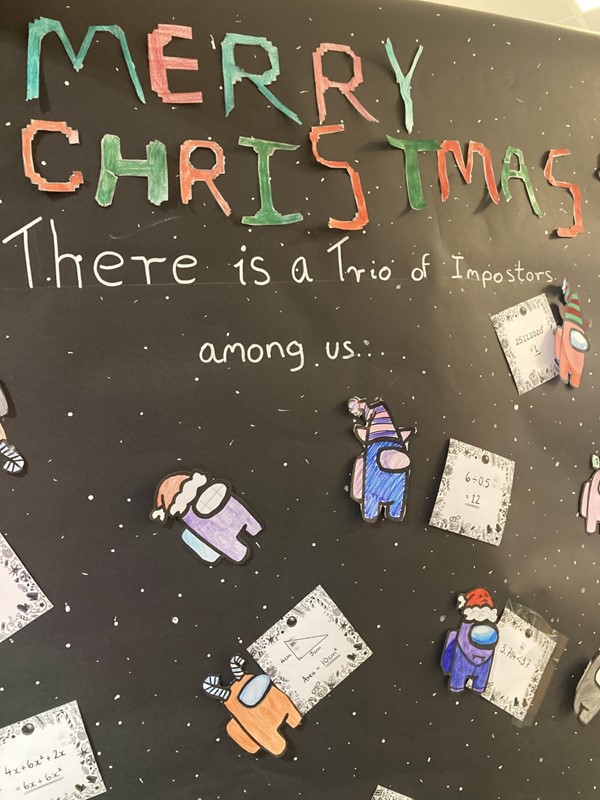 MERRY
CHRISTMAS
There is a Trio of Impostors
among us...
25112020⁰
= 1
6÷0.5
= 12
4cm
5cm
Area = 10cm²
4x+6x²+2x
= 6x+6x²